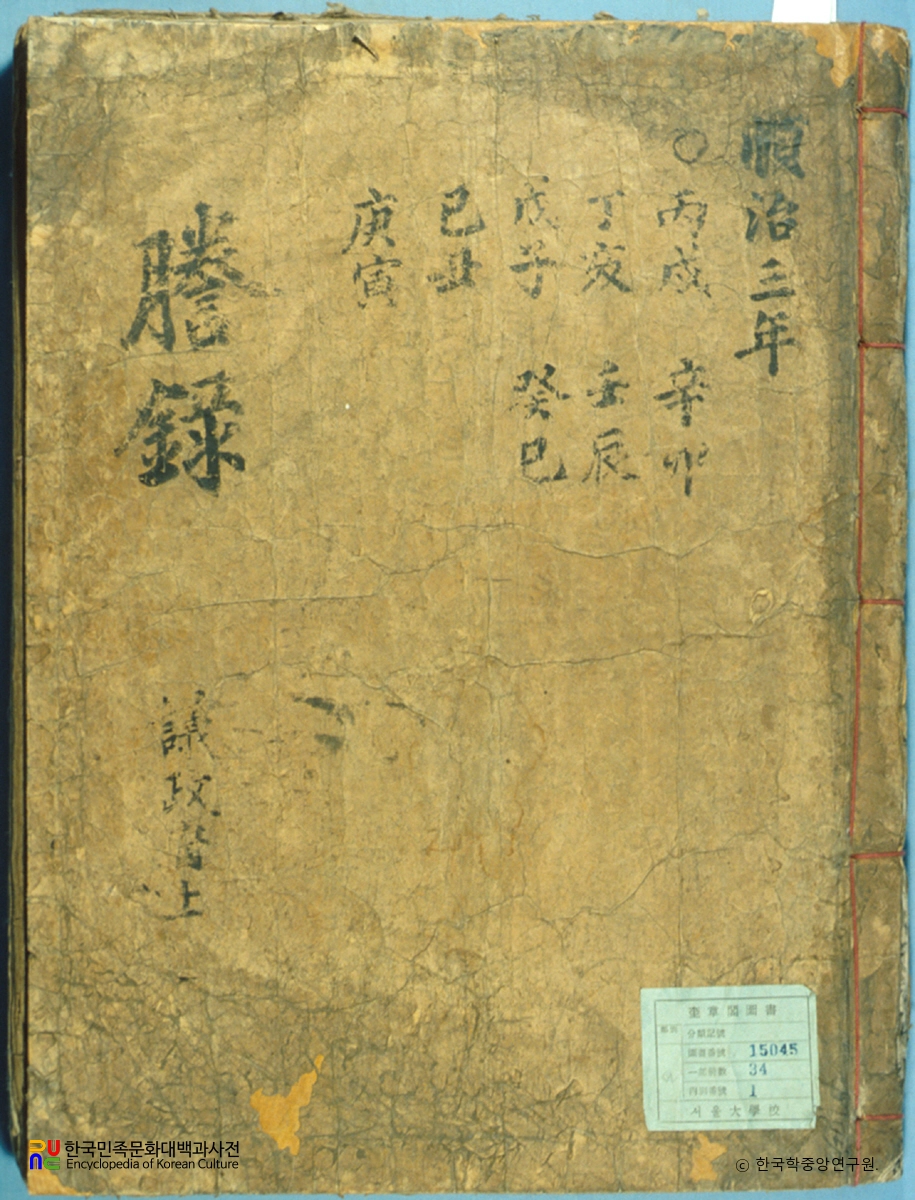 順治三年
○丙戌 辛卯
丁亥 壬辰
戊子 癸巳
己丑
庚寅
謄録
議政府上
奎章閣圖書
分類記號
圖書番號 15045
一部冊數 34
內容番號 1
서울大學校
한국민족문화대백과사전
Encyclopedia of Korean Culture
© 한국학중앙연구원.